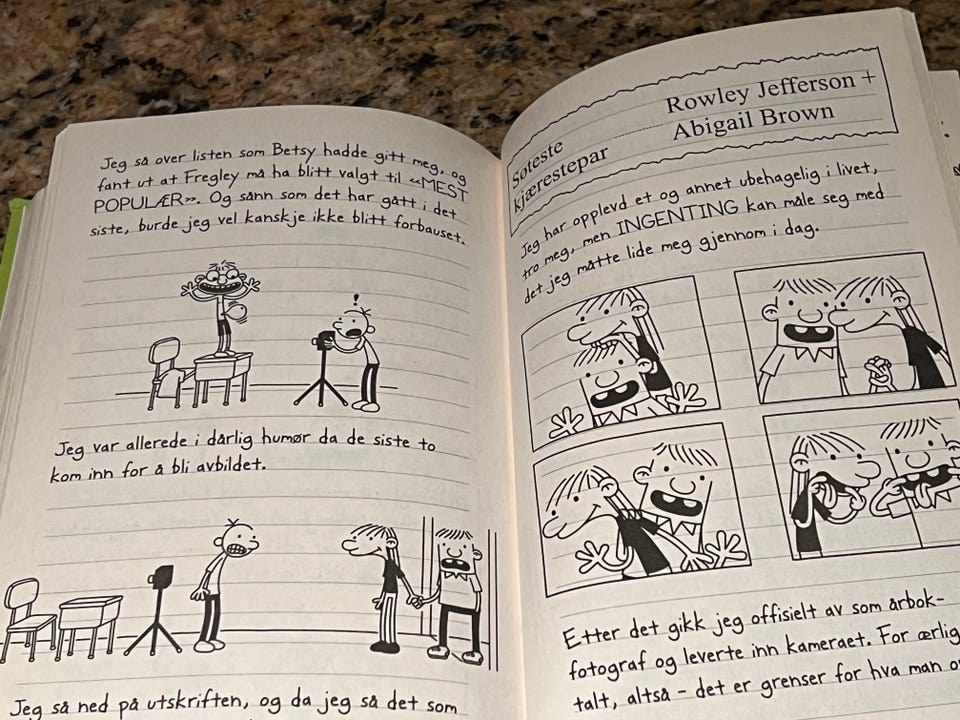 Jeg så over listen som Betsy hadde gitt meg, og
fant ut at Fregley må ha blitt valgt til «MEST
POPULÆR». Og sånn som det har gått i det
siste, burde jeg vel kanskje ikke blitt forbauset.
!
Jeg var allerede i dårlig humør da de siste to
kom inn for å bli avbildet.
Jeg så ned på utskriften, og da jeg så det som
Søteste
kjærestepar
Rowley Jefferson +
Abigail Brown
Jeg har opplevd et og annet ubehagelig i livet,
tro meg, men INGENTING kan måle seg med
det jeg måtte lide meg gjennom i dag.
Etter det gikk jeg offisielt av som årbok-
fotograf og leverte inn kameraet. For ærlig
talt, altså – det er grenser for hva man